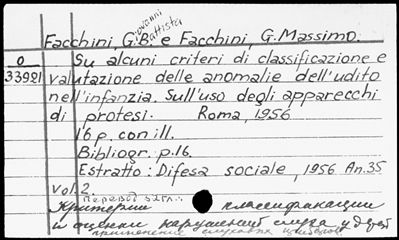 Giovanni
Battista
Facchini, G.B. e Facchini, G. Massimo.
O
33921
Su alcuni criteri di classificazione e
valutazione delle anomalie dell'udito
nell'infanzia. Sull'uso degli apparecchi
di protesi. Roma, 1956
16 p. con ill.
Bibliogr. p.16.
Estratto: Difesa sociale, 1956 An.35
vol.2.
Перевод загл.:
Критерии классификации
и оценки нарушений слуха у детей
применение слуховых